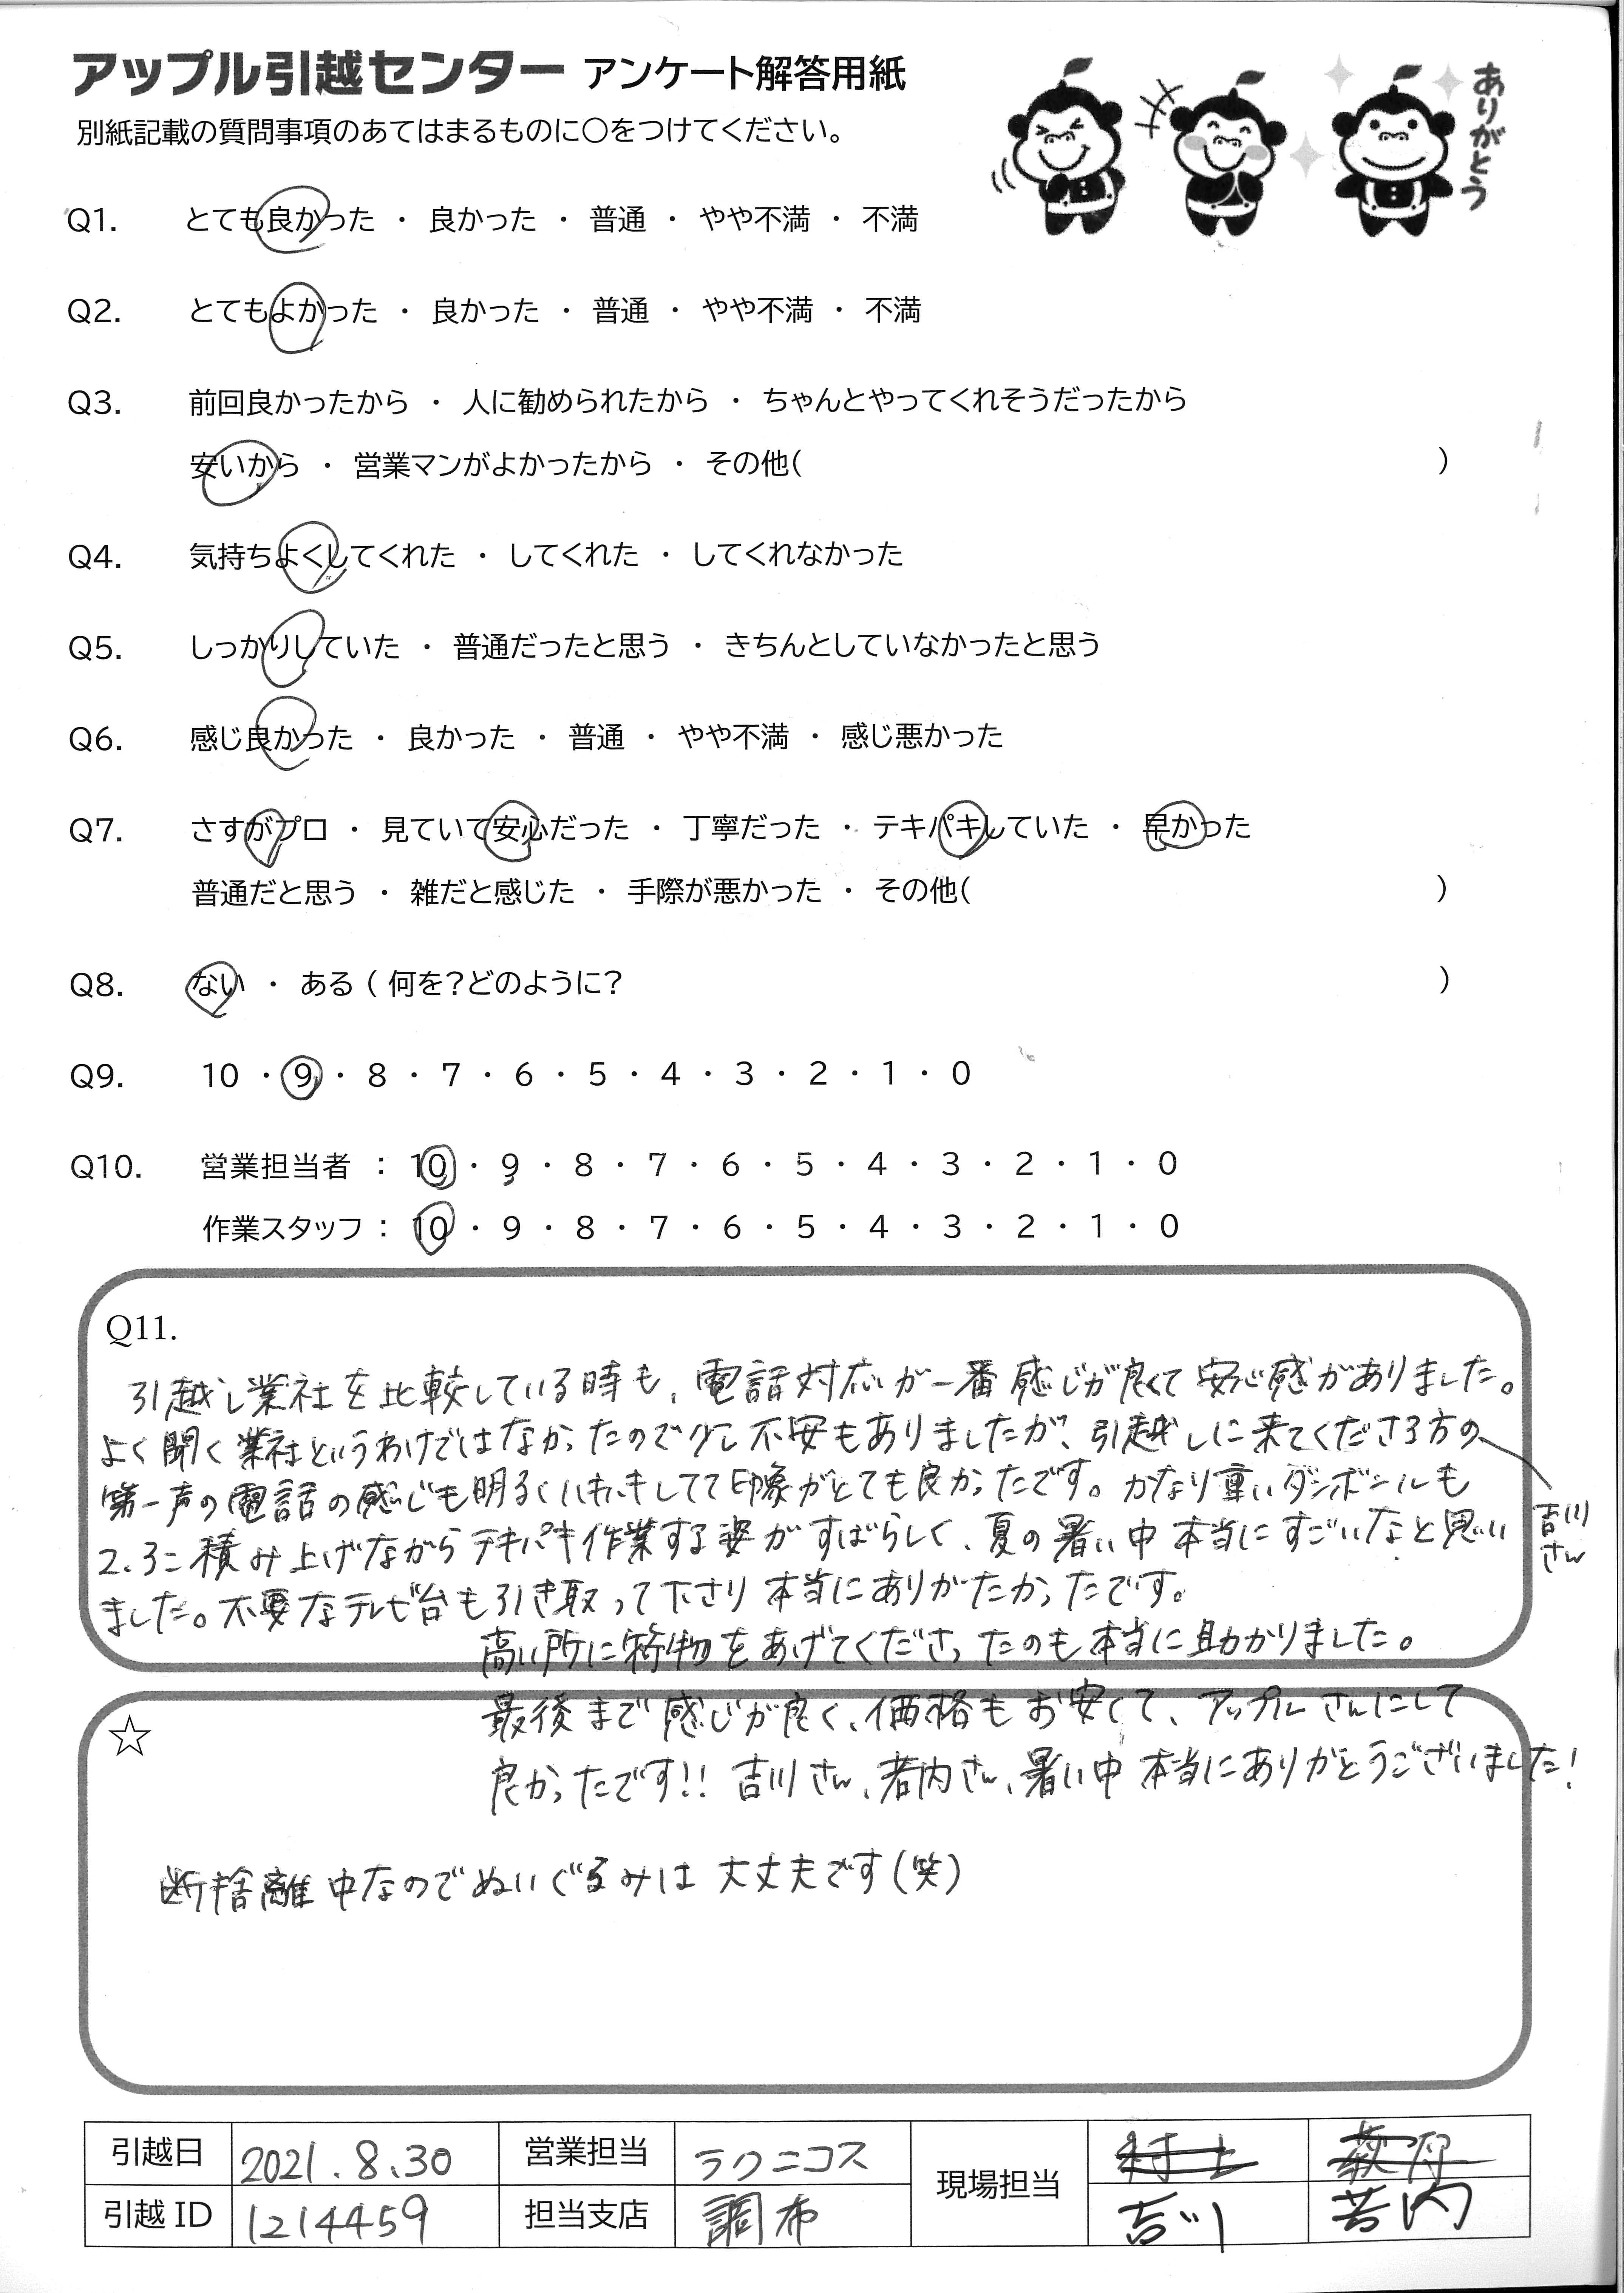 アップル引越センター アンケート解答用紙
ありがとう
別紙記載の質問事項のあてはまるものに○をつけてください。
Q1. とても良かった ・ 良かった ・ 普通 ・ やや不満 ・ 不満
Q2. とてもよかった ・ 良かった ・ 普通 ・ やや不満 ・ 不満
Q3. 前回良かったから ・ 人に勧められたから ・ ちゃんとやってくれそうだったから
安いから ・ 営業マンがよかったから ・ その他( )
Q4. 気持ちよくしてくれた ・ してくれた ・ してくれなかった
Q5. しっかりしていた ・ 普通だったと思う ・ きちんとしていなかったと思う
Q6. 感じ良かった ・ 良かった ・ 普通 ・ やや不満 ・ 感じ悪かった
Q7. さすがプロ ・ 見ていて安心だった ・ 丁寧だった ・ テキパキしていた ・ 早かった
普通だと思う ・ 雑だと感じた ・ 手際が悪かった ・ その他( )
Q8. ない ・ ある ( 何を?どのように? )
Q9. 10 ・ 9 ・ 8 ・ 7 ・ 6 ・ 5 ・ 4 ・ 3 ・ 2 ・ 1 ・ 0
Q10. 営業担当者 : 10 ・ 9 ・ 8 ・ 7 ・ 6 ・ 5 ・ 4 ・ 3 ・ 2 ・ 1 ・ 0
作業スタッフ : 10 ・ 9 ・ 8 ・ 7 ・ 6 ・ 5 ・ 4 ・ 3 ・ 2 ・ 1 ・ 0
Q11.
引越し業社を比較している時も、電話対応が一番感じが良くて安心感がありました。
よく聞く業社というわけではなかったので少し不安もありましたが、引越しに来てくださる方の
吉川さん
第一声の電話の感じも明るくいきいきしてて印象がとても良かったです。かなり重いダンボールも
2、3こ積み上げながらテキパキ作業する姿がすばらしく、夏の暑い中本当にすごいなと思い
ました。不要なテレビ台も引き取って下さり本当にありがたかったです。
高い所に荷物をあげてくださったのも本当に助かりました。
☆
最後まで感じが良く、価格もお安くて、アップルさんにして
良かったです!! 吉川さん、若内さん、暑い中本当にありがとうございました!
断捨離中なのでぬいぐるみは大丈夫です(笑)
引越日 2021.8.30 営業担当 ラクニコス 現場担当 村上
引越 ID 1214459 担当支店 調布 吉川 若内